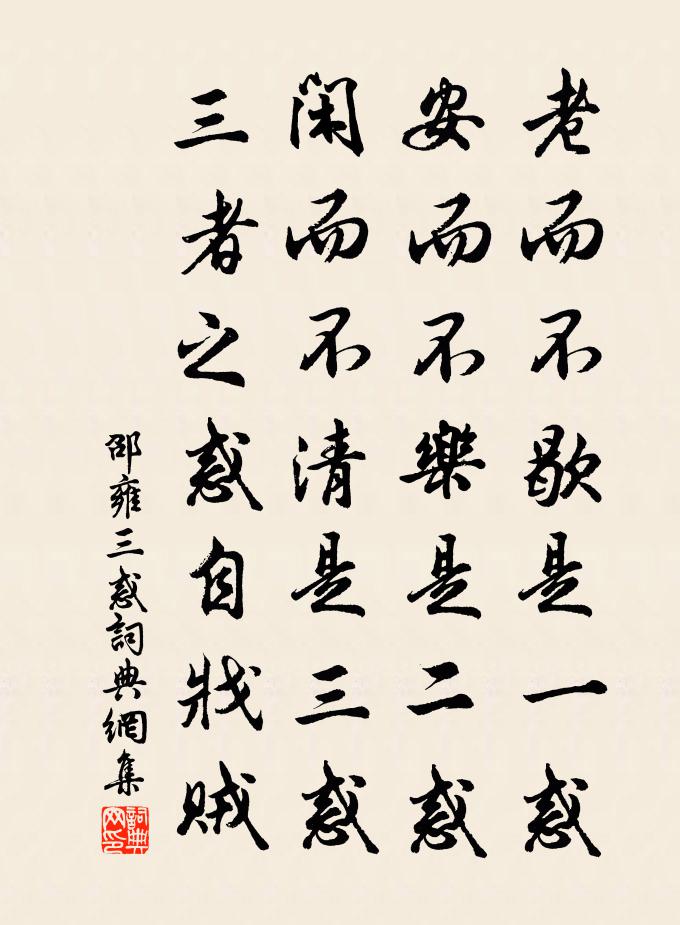 老而不歇是一惑
安而不樂是二惑
閑而不清是三惑
三者之惑自戕賊
邵雍三惑詞典網集
詞典
网印